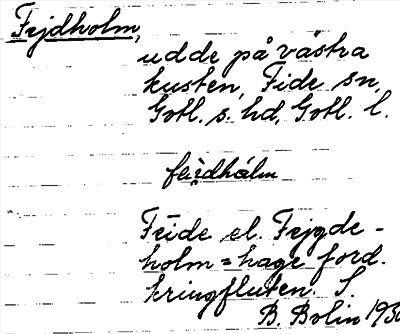 Fejdholm,
udde på västra
kusten, Fide sn,
Gotl. s. hd, Gotl. l.
Feide el. Fejgde-
holm = hage ford.
kringfluten. S.
B. Bolin